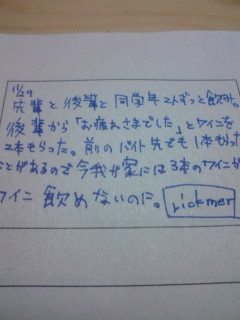 11/29
先輩と後輩と同学年2人ずつと飲み。
後輩から「お疲れさまでした」とワインを
2本もらった。前のバイト先でも1本もらった
ことがあるので今我が家には3本のワインが
ワイン飲めないのに。 rickmer